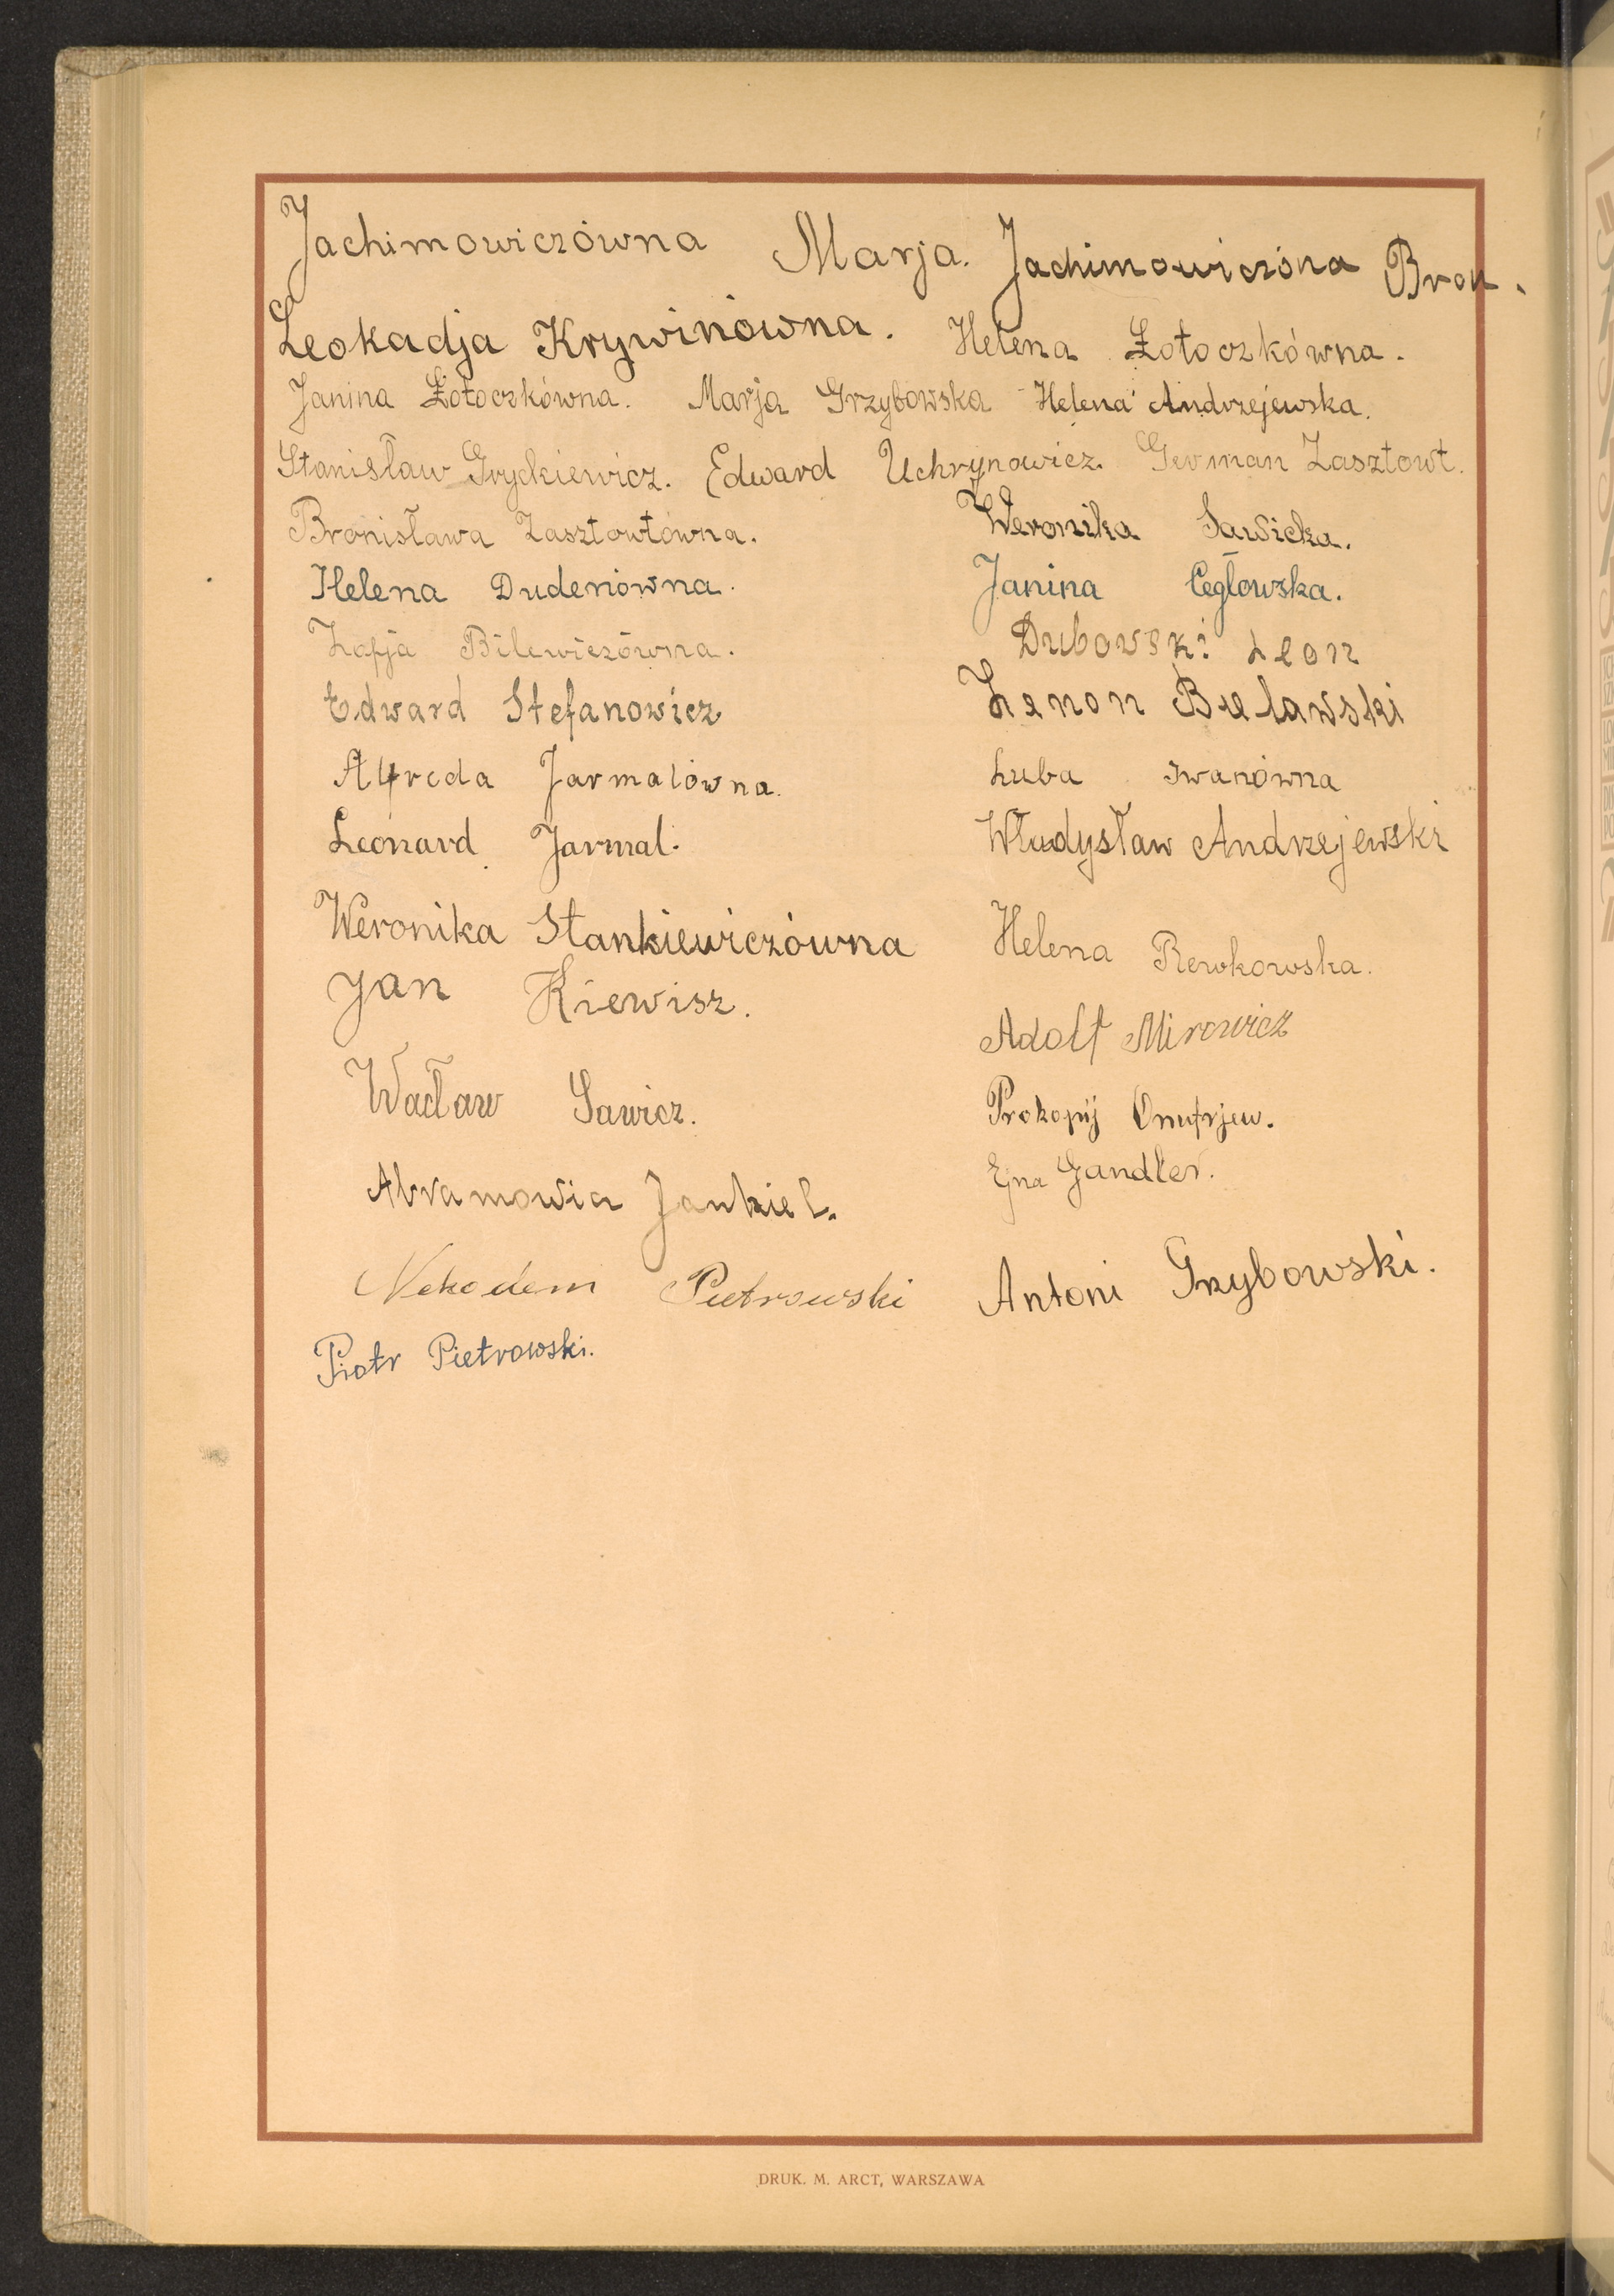 Jachimowiczówna Marja. Jachimowiczóna Bron.
Leokadja Krywinówna. Helena Żołoczkówna.
Janina Żołoczkówna. Marja Grzybowska Helena Andrzejewska.
Stanisław Gryckiewicz. Edward Uchrynowicz. German Zasztowt.
Bronisława Zasztowtówna. Weronika Sawicka.
Helena Dudenówna. Janina Cegłowska.
Zofja Bilewiczówna. Dubowski Leon
Edward Stefanowicz Zenon Bielawski
Alfreda Jarmalówna. Luba Iwanówna
Leonard Jarmal. Władysław Andrzejewski
Weronika Stankiewiczówna Helena Rewkowska.
Jan Kiewisz. Adolf Mirowicz
Wacław Sawicz. Prokopij
Jankiel. Gandler.
Nekodem Pietrowski Antoni Grzybowski.
Piotr Pietrowski.
DRUK. M. ARCT, WARSZAWA